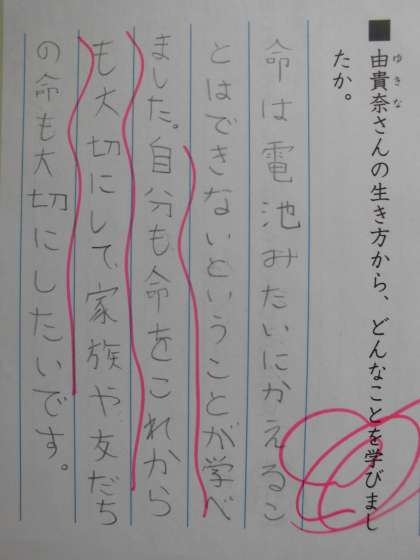 ■由貴奈さんの生き方から、どんなことを学びまし
ゆきな
たか。
命は電池みたいにかえるこ
とはできないということが学べ
ました。自分も命をこれから
も大切にして、家族や友だち
の命も大切にしたいです。